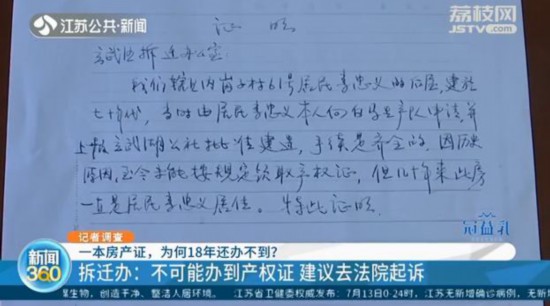 江苏公共·新闻
荔枝网
JSTV.COM
证 明
玄武区拆迁办公室
我们辖区内岗子村61号居民李忠义的房屋,建于
七十年代,当时由居民李忠义本人向白马生产队申请并
上报玄武湖公社批准建造,手续是齐全的,因历史
原因,至今未能按规定领取产权证,但几十年来此房
一直是居民李忠义居住。特此证明
冠益乳
记者调查
一本房产证,为何18年还办不到?
新闻
360
拆迁办:不可能办到产权证 建议去法院起诉
媒生物,创造干净、整洁人居环境。 江苏省卫健委权威发布:7月13日0-24时,江苏无新增确诊病例,无新增